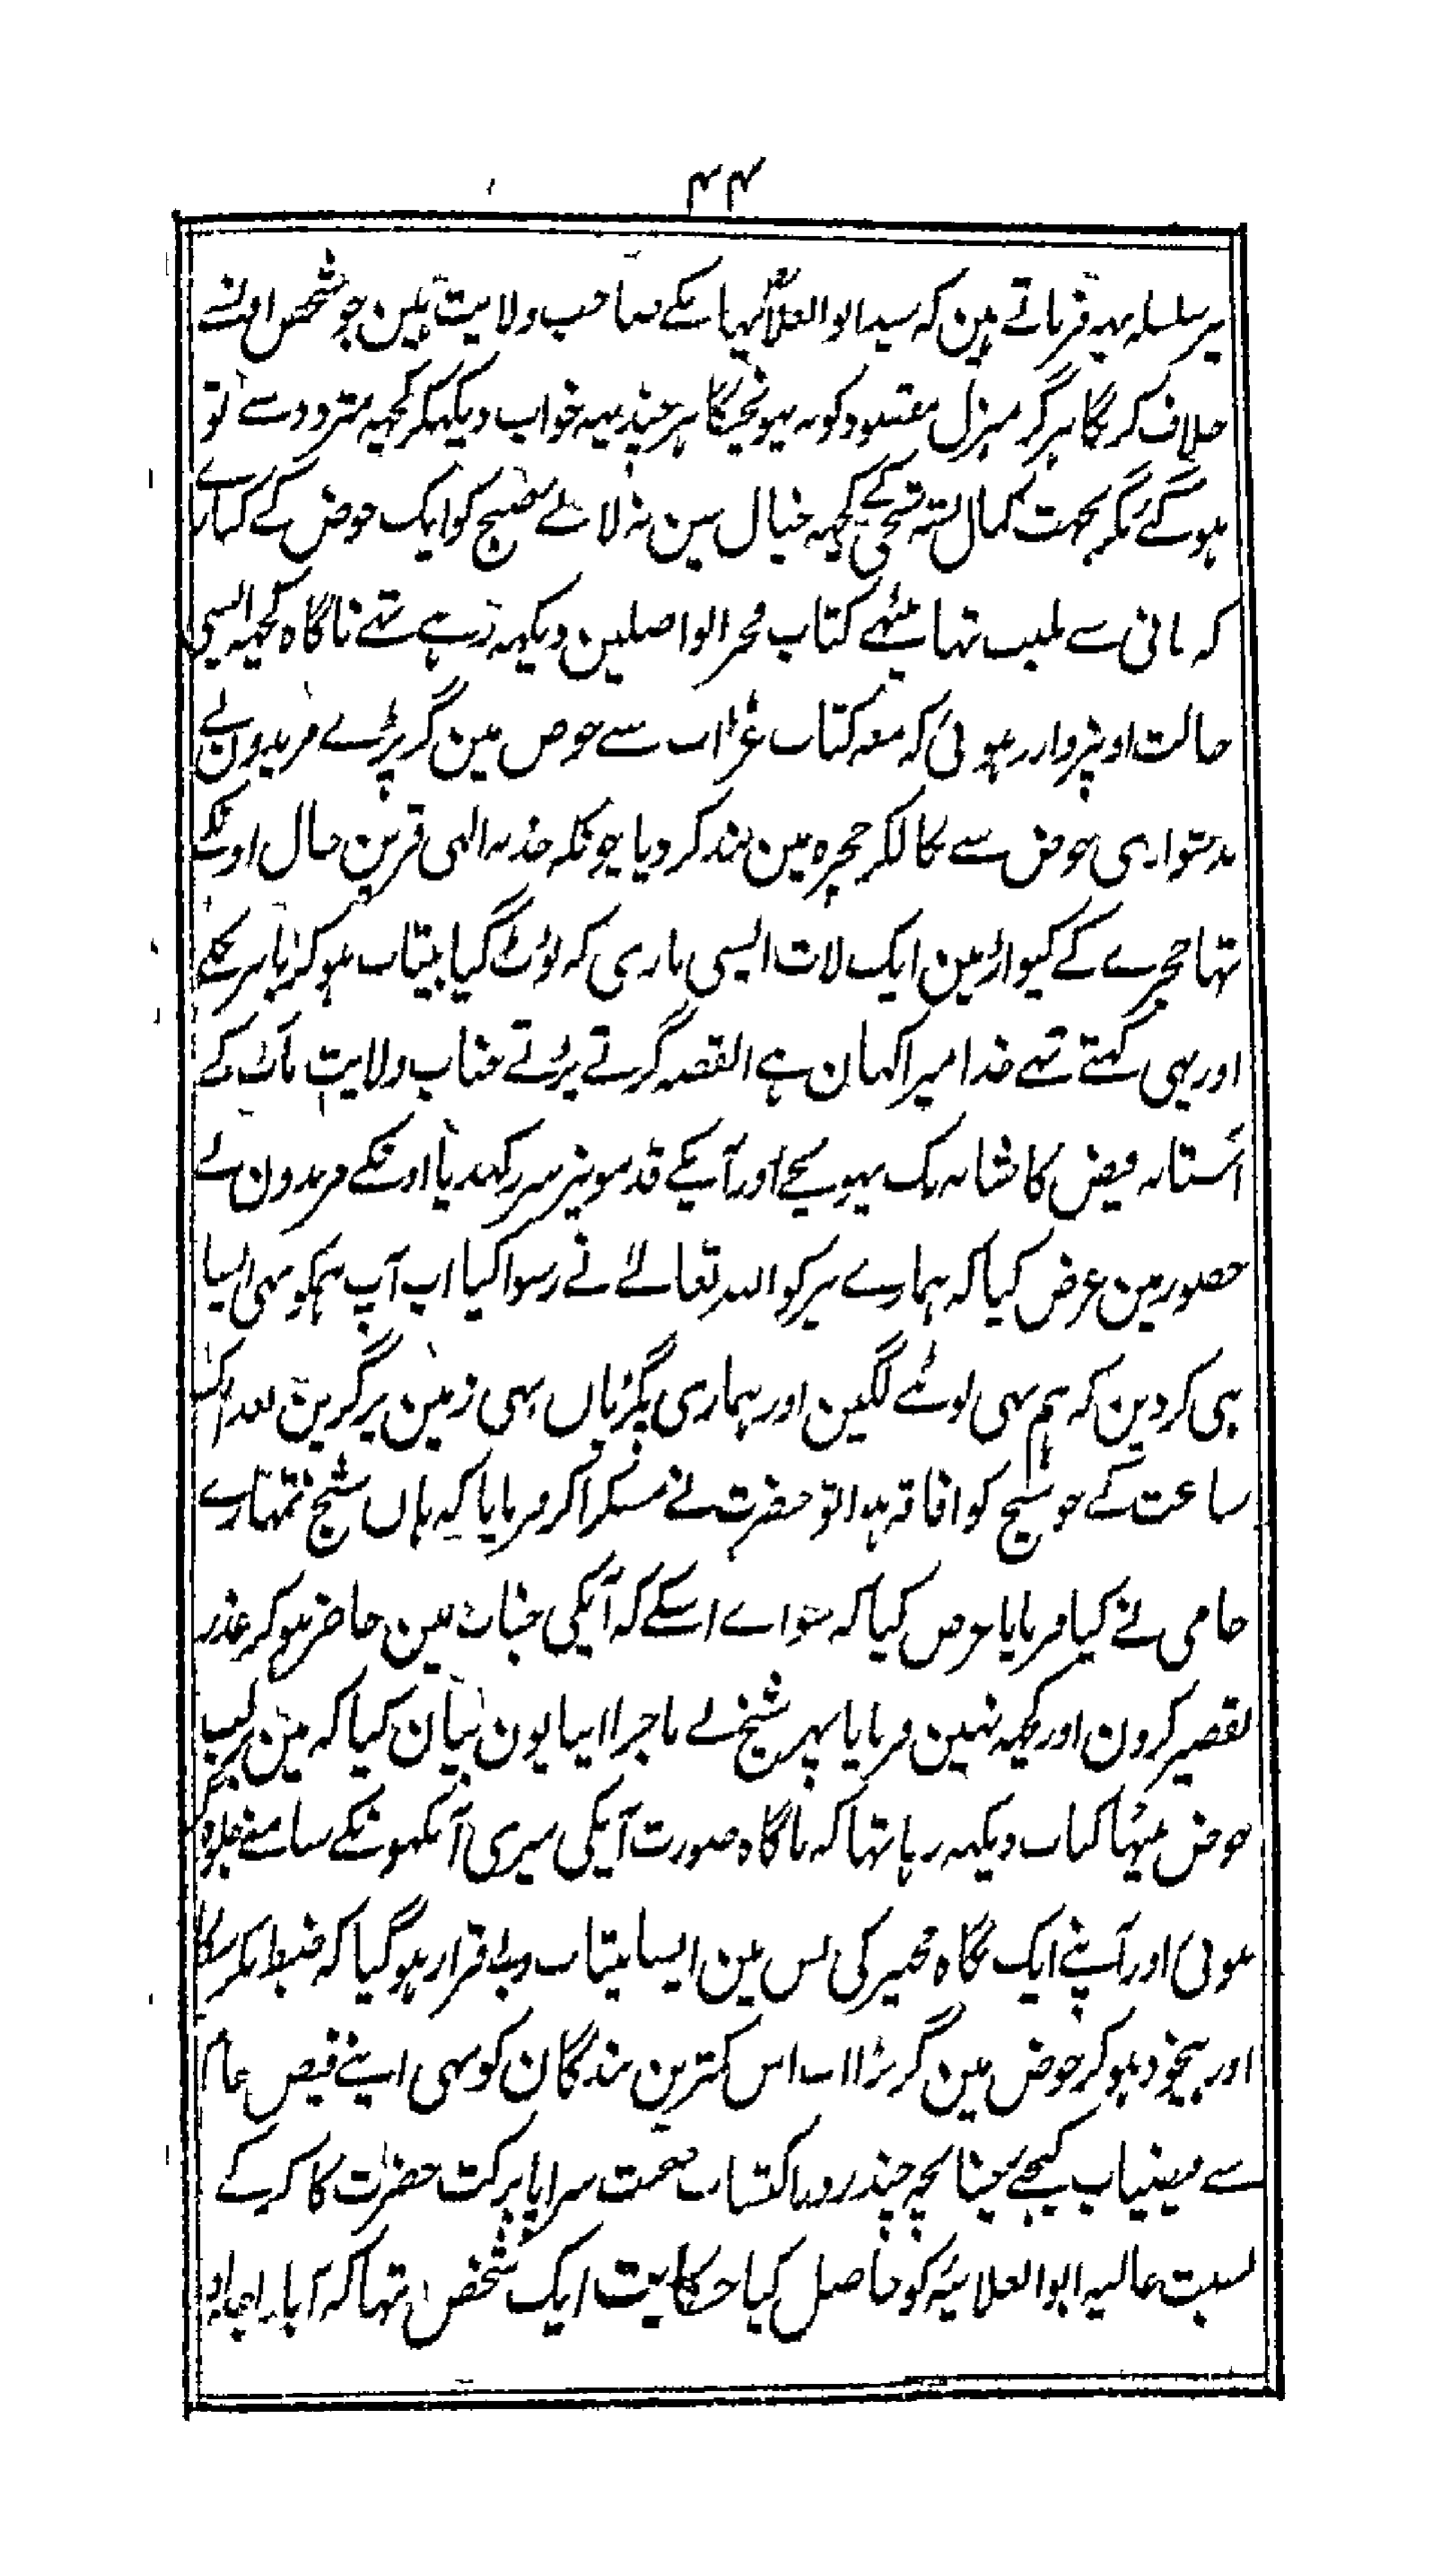 ۴۴
پیر سلسلہ یہہ فرماتے ہین کہ سید ابو العلا یہانکے صاحب ولایت ہین جو شخص اونسے
خلاف کریگا ہرگز منزل مقصود کو نہ پہونچیگا ہر چند یہہ خواب دیکھکر کچہہ متردد سے تو
ہو گئے مگر بجہت کمال شیخی کے کچہہ خیال مین نہ لائے صبح کو ایک حوض کے کنارے
کہ پانی سے لبلب تہا بیٹھے کتاب فخر الواصلین دیکہہ رہے تہے ناگاہ کچہہ ایسی
حالت اونپر وارد ہوئی کہ معہ کتاب غڑاپ سے حوض مین گر پڑے مریدون نے
بدشواری حوض سے نکالکر حجرہ مین بند کر دیا چونکہ جذبہ الہی قرین حال اونکے
تہا حجرے کے کیواڑمین ایک لات ایسی ماری کہ ٹوٹ گیا بیتاب ہو کر باہر نکلے
اور یہی کہتے تہے خدا میرا کہان ہے القصہ گرتے پڑتے جناب ولایت مآب کے
آستانہ فیض کاشانہ تک پہونچے اور آپکے قدمونپر سر رکہدیا اونکے مریدون نے
حضور مین عرض کیا کہ ہمارے پیر کو اللہ تعالےٰ نے رسوا کیا اب آپ ہمکو بہی ایسا
ہی کر دین کہ ہم بہی لوٹنے لگین اور ہماری پگڑیاں بہی زمین پر گرین بعد ایک
ساعت کے جو شیخ کو افاقہ ہوا تو حضرت نے مسکرا کر فرمایا کہ ہاں شیخ تمہارے
حامی نے کیا فرمایا عرض کیا کہ سواے اسکے کہ آپکی جناب مین حاضر ہو کر عذر
تقصیر کرون اور کچہہ نہین فرمایا پہر شیخ نے ماجرا اپنا یون بیان کیا کہ مین لب
حوض بیٹہا کتاب دیکہہ رہا تہا کہ ناگاہ صورت آپکی میری آنکہونکے سامنے جلوہ گر
ہوئی اور آپنے ایک نگاہ مجہپر کی بس مین ایسا بیتاب و بے قرار ہو گیا کہ ضبط نکر سکا
اور بیخود ہو کر حوض مین گر پڑا اب اس کمترین بندگان کو بہی اپنے فیض عام
سے فیضیاب کیجئے چنانچہ چند روز اکتساب صحبت سراپا برکت حضرت کا کر کے
نسبت عالیہ ابو العلائیہ کو حاصل کیا حکایت ایک شخص تہا کہ آبا و اجداد